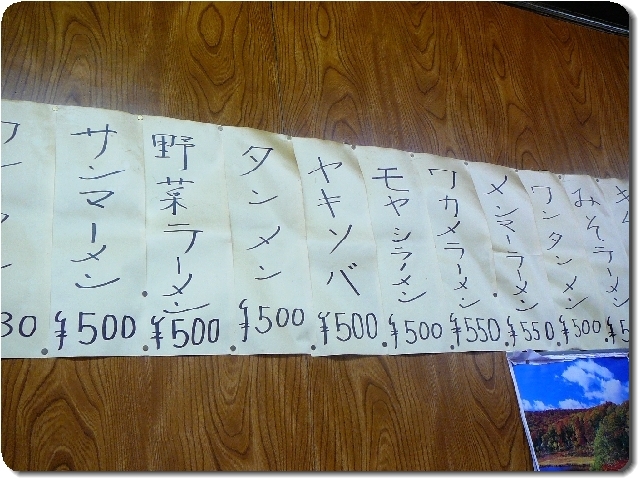 みそラーメン
¥5
ワンタンメン
¥500
メンマーラーメン
¥550
ワカメラーメン
¥550
モヤシラーメン
¥500
ヤキソバ
¥500
タンメン
¥500
野菜ラーメン
¥500
サンマーメン
¥500
30